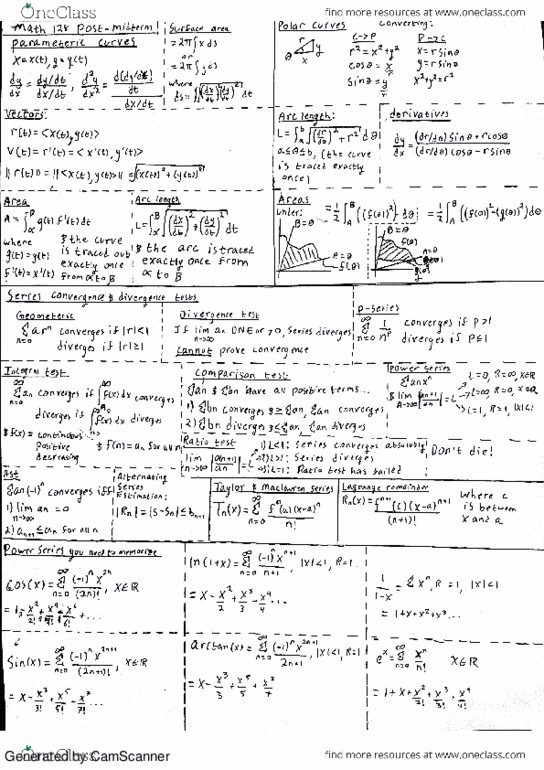 OneClass
find more resources at oneclass.com
Math 128 Post-midterm
parameteric curves
x=x(t), y=y(t)
dy/dx = (dy/dt)/(dx/dt), d²y/dx² = (d(dy/dx)/dt)/(dx/dt)
Surface area
= 2π∫x ds
or
= 2π∫y ds
where
ds=√((dx/dt)²+(dy/dt)²) dt
Polar curves Converting:
C→P P→C
r²=x²+y² x=rsinθ
cosθ=x/r y=rsinθ
sinθ=y/r x²+y²=r²
Vectors:
r(t)=<x(t),y(t)>
v(t)=r'(t)=<x'(t),y'(t)>
||r(t)||=||<x(t),y(t)>||=√((x(t))²+(y(t))²)
Arc length:
L=∫ₐᵇ√((dr/dθ)²+r²) dθ
a≤θ≤b, (the curve
is traced exactly
once)
derivatives
dy/dx = ((dr/dθ)sinθ+rcosθ)/((dr/dθ)cosθ-rsinθ)
Area
A=∫g(t)f'(t)dt
where & the curve
g(t)=y(t) is traced out
exactly once
f'(t)=x'(t) from α to β
Arc length
L=∫√((dx/dt)²+(dy/dt)²) dt
& the arc is traced
exactly once from
α to β
Areas
under:
=1/2∫((f(θ))²)dθ
=1/2∫((f(θ))²-(g(θ))²)dθ
Series convergence & divergence tests
Geometeric
Σarⁿ converges if |r|<1
n=0 diverges if |r|≥1
Divergence test
If lim an DNE or ≠0, Series diverges
n→∞
cannot prove convergence
P-series
Σ 1/nᵖ converges if p>1
diverges if p≤1
Integral test
Σan converges if ∫f(x)dx converges
diverges if ∫f(x)dx diverges
& f(x)=continuous
positive & f(n)=an for all n
decreasing
Comparison test
Σan & Σbn have all positive terms...
1) Σbn converges & ≥Σan, Σan converges
2) Σbn diverges & ≤Σan, Σan diverges
Power Series
Σanxⁿ
Ratio test
lim |an+1/an|=L
n→∞
1) L<1: Series converges absolutely
2) L>1: Series diverges
3) L=1: Ratio test has failed
Don't die!
Ast
Σan(-1)ⁿ converges iff
1) lim an=0
n→∞
2) an+1≤an for all n
Alternating
Series
Estimation:
|Rn|=|S-Sn|≤bn+1
Taylor & Maclauren series
Tn(x)=Σ fⁿ(a)(x-a)ⁿ/n!
n=0
Lagrange remainder
Rn(x)=fⁿ⁺¹(c)(x-a)ⁿ⁺¹/(n+1)!
where c
is between
x and a
Power Series you need to memorize
cos(x)=Σ(-1)ⁿx²ⁿ/(2n)!, x∈R
=1-x²/2!+x⁴/4!-x⁶/6!...
ln(1+x)=Σ(-1)ⁿxⁿ⁺¹/(n+1), |x|<1, R=1
=x-x²/2+x³/3-x⁴/4...
1/(1-x)=Σxⁿ, R=1, |x|<1
=1+x+x²+x³...
sin(x)=Σ(-1)ⁿx²ⁿ⁺¹/(2n+1)!, x∈R
=x-x³/3!+x⁵/5!-x⁷/7!...
arctan(x)=Σ(-1)ⁿx²ⁿ⁺¹/(2n+1), |x|<1, R=1
=x-x³/3+x⁵/5-x⁷/7
eˣ=Σxⁿ/n! x∈R
=1+x+x²/2!+x³/3!+x⁴/4!
OneClass
Generated by CamScanner
find more resources at oneclass.com